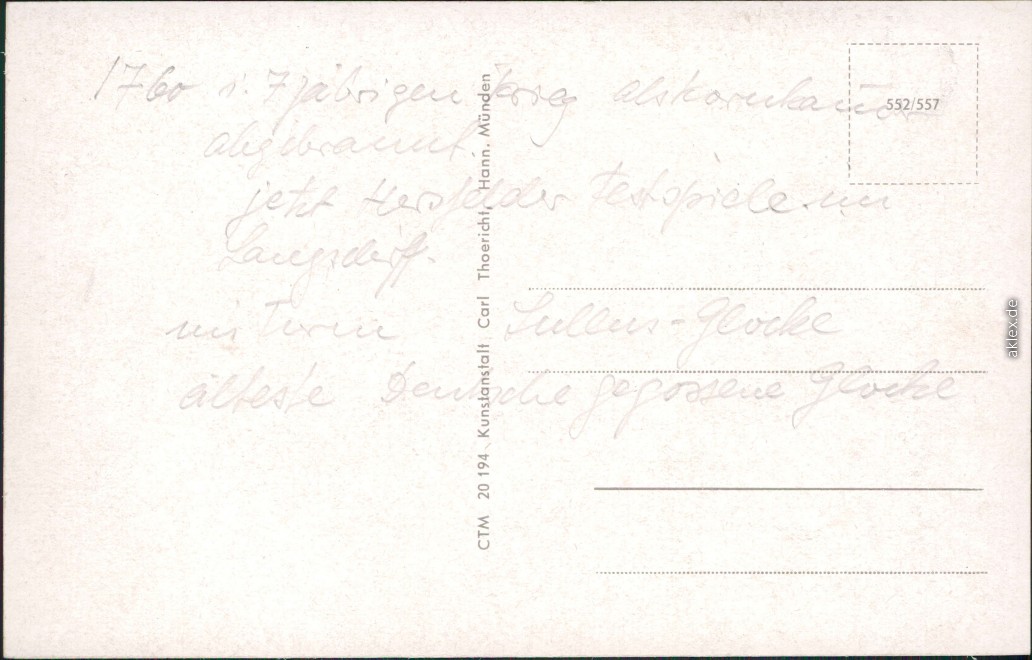 1760 i. 7 jährigen Krieg als
abgebrannt.
jetzt Hersfelder Festspiele
im Turm Lullus-Glocke
älteste Deutsche gegossene Glocke
552/557
CTM 20 194 Kunstanstalt Carl Thoericht, Hann. Münden
aklex.de